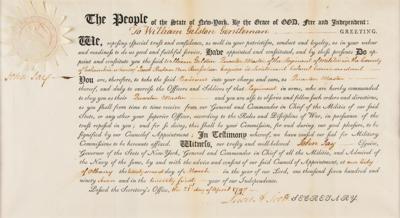 The People of the State of New-York, By the Grace of GOD, Free and Independent:
To William Gelston Gentleman GREETING.
We, reposing special trust and confidence, as well in your patriotism, conduct and loyalty, as in your valour
and readiness to do us good and faithful service, Have appointed and constituted, and by these presents Do ap-
point and constitute you the said William Gelston Quarter Master of the Regiment of Militia in the County
John Jay
You are, therefore, to take the said Regiment into your charge and care, as Quarter Master
thereof, and duly to exercise the Officers and Soldiers of that Regiment in arms, who are hereby commanded
to obey you as their Quarter Master and you are also to observe and follow such orders and directions,
as you shall from time to time receive from our General and Commander in Chief of the Militia of our said
State, or any other your Superior Officer, according to the Rules and Discipline of War, in pursuance of the
trust reposed in you; and for so doing, this shall be your Commission, for and during our good pleasure, to be
signified by our Council of Appointment; In Testimony whereof, we have caused our seal for Military
Commissions to be hereunto affixed. Witness, our trusty and well-beloved John Jay Esquire,
Governor of our State of New-York, General and Commander in Chief of all the Militia, and Admiral of
the Navy of the same, by and with the advice and consent of our said Council of Appointment, at our City
of Albany the day of March in the year of our Lord, one thousand seven hundred and
ninety seven and in the twenty first year of our Independence.
Passed the Secretary's Office, the 21st day of April 1797
SECRETARY.